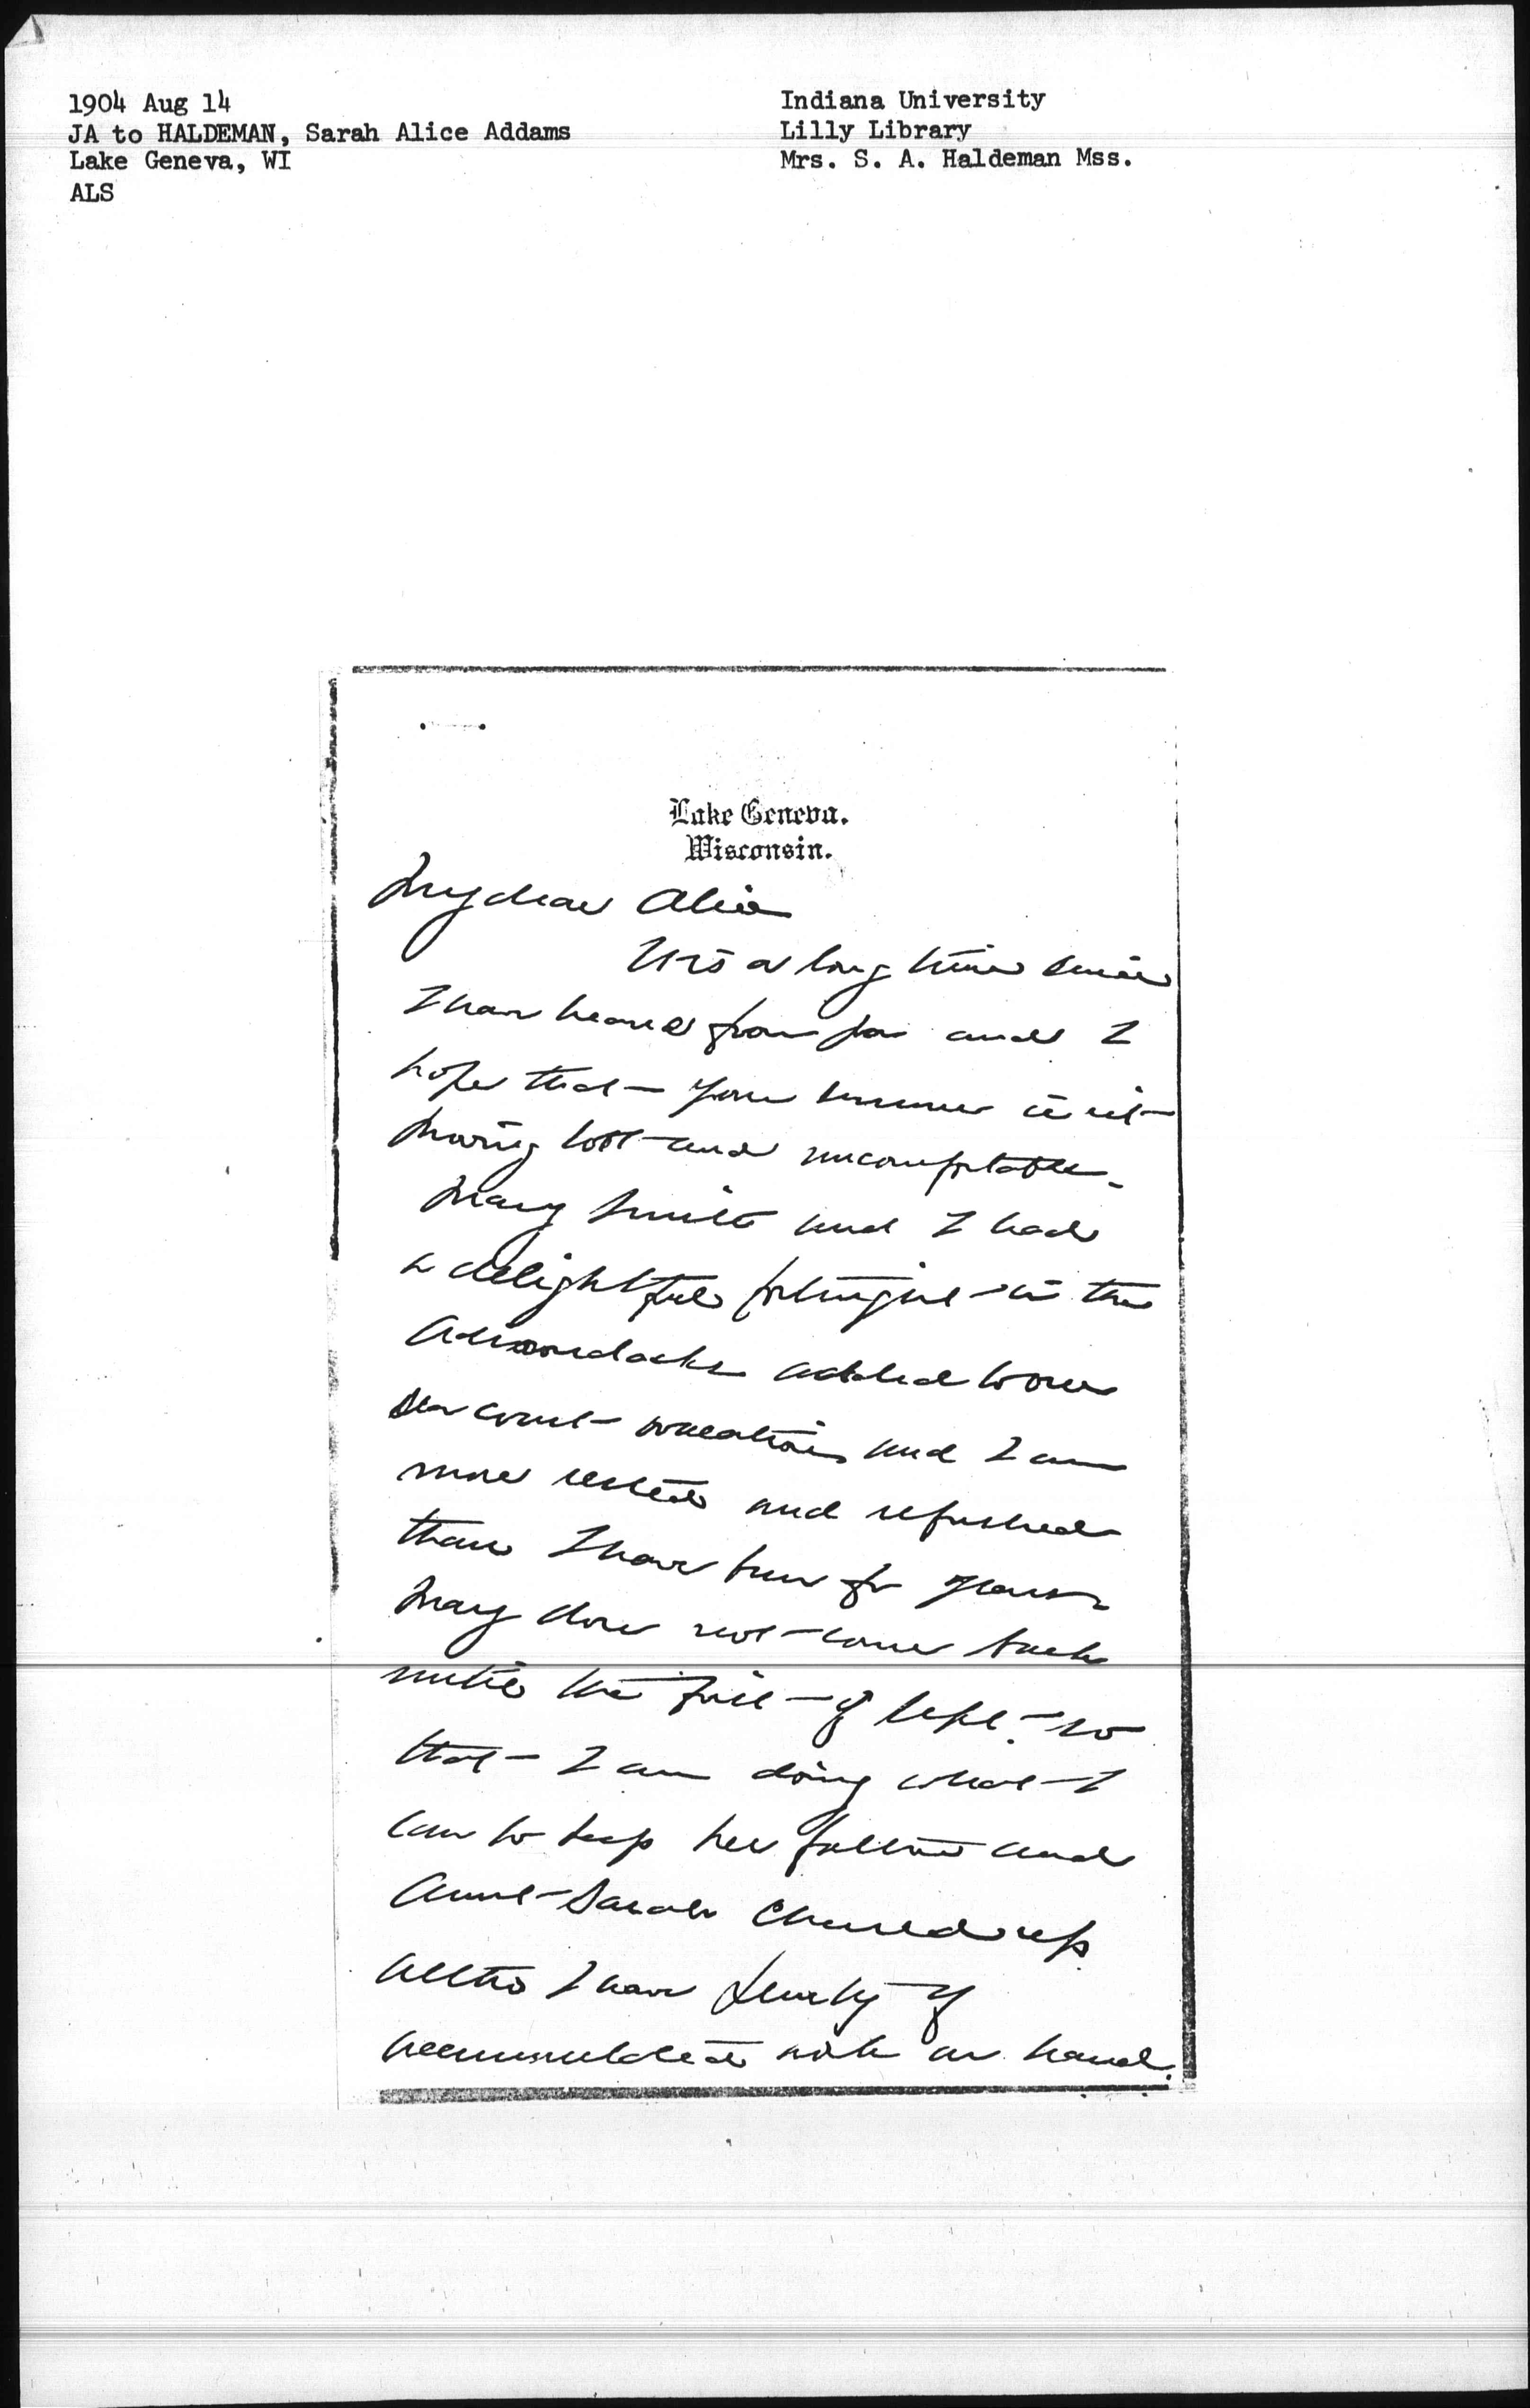 1904 Aug 14
JA to HALDEMAN, Sarah Alice Addams
Lake Geneva, WI
ALS
Indiana University
Lilly Library
Mrs. S. A. Haldeman Mss.
Lake Geneva.
Wisconsin.
My dear Alice
It is a long time since
I have heard from you and I
hope that your summer is not
proving hot and uncomfortable.
Mary Smith and I had
a delightful fortnight in the
Adirondacks added to our
sea coast vacation and I am
more rested and refreshed
than I have been for years
Mary does not come back
until the first of Sept. so
that I am doing what I
can to keep her father and
Aunt Sarah cheered up
altho I have plenty of
accumulated work on hand.